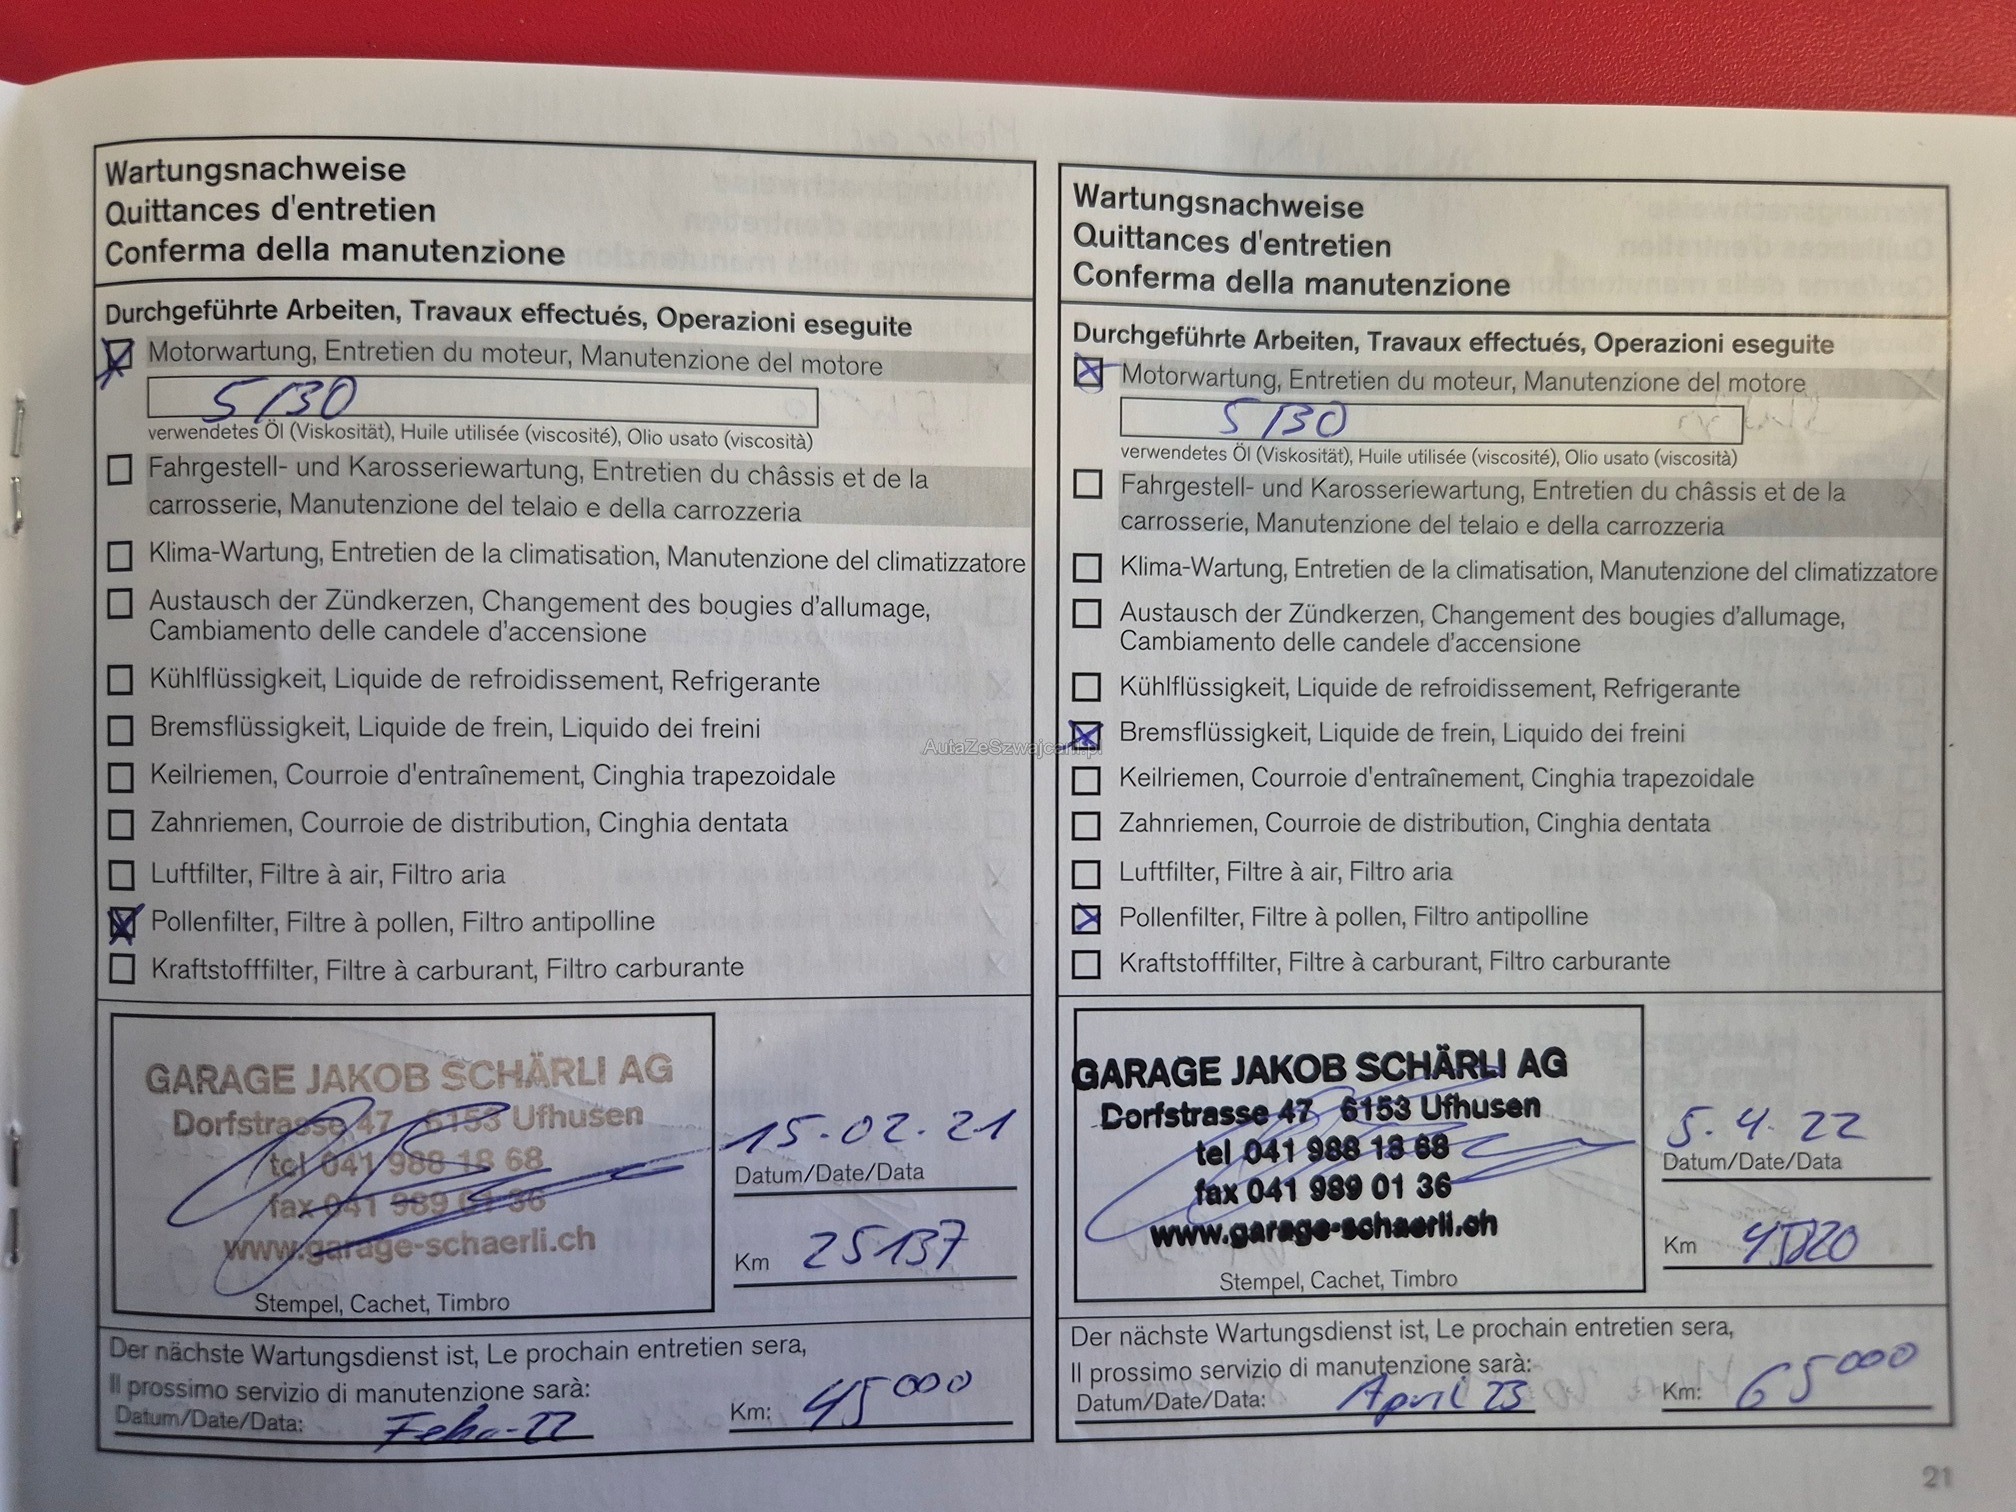 Wartungsnachweise
Quittances d'entretien
Conferma della manutenzione
Durchgeführte Arbeiten, Travaux effectués, Operazioni eseguite
Motorwartung, Entretien du moteur, Manutenzione del motore
5/30
verwendetes Öl (Viskosität), Huile utilisée (viscosité), Olio usato (viscosità)
Fahrgestell- und Karosseriewartung, Entretien du châssis et de la
carrosserie, Manutenzione del telaio e della carrozzeria
Klima-Wartung, Entretien de la climatisation, Manutenzione del climatizzatore
Austausch der Zündkerzen, Changement des bougies d'allumage,
Cambiamento delle candele d'accensione
Kühlflüssigkeit, Liquide de refroidissement, Refrigerante
Bremsflüssigkeit, Liquide de frein, Liquido dei freini
Keilriemen, Courroie d'entraînement, Cinghia trapezoidale
Zahnriemen, Courroie de distribution, Cinghia dentata
Luftfilter, Filtre à air, Filtro aria
Pollenfilter, Filtre à pollen, Filtro antipolline
Kraftstofffilter, Filtre à carburant, Filtro carburante
GARAGE JAKOB SCHÄRLI AG
Dorfstrasse 47 6153 Ufhusen
tel 041 988 18 68
fax 041 989 01 36
www.garage-schaerli.ch
Stempel, Cachet, Timbro
15.02.21
Datum/Date/Data
Km 25137
Der nächste Wartungsdienst ist, Le prochain entretien sera,
Il prossimo servizio di manutenzione sarà:
Datum/Date/Data: Febr.22 Km: 45000
Wartungsnachweise
Quittances d'entretien
Conferma della manutenzione
Durchgeführte Arbeiten, Travaux effectués, Operazioni eseguite
Motorwartung, Entretien du moteur, Manutenzione del motore
5/30
verwendetes Öl (Viskosität), Huile utilisée (viscosité), Olio usato (viscosità)
Fahrgestell- und Karosseriewartung, Entretien du châssis et de la
carrosserie, Manutenzione del telaio e della carrozzeria
Klima-Wartung, Entretien de la climatisation, Manutenzione del climatizzatore
Austausch der Zündkerzen, Changement des bougies d'allumage,
Cambiamento delle candele d'accensione
Kühlflüssigkeit, Liquide de refroidissement, Refrigerante
Bremsflüssigkeit, Liquide de frein, Liquido dei freini
Keilriemen, Courroie d'entraînement, Cinghia trapezoidale
Zahnriemen, Courroie de distribution, Cinghia dentata
Luftfilter, Filtre à air, Filtro aria
Pollenfilter, Filtre à pollen, Filtro antipolline
Kraftstofffilter, Filtre à carburant, Filtro carburante
GARAGE JAKOB SCHÄRLI AG
Dorfstrasse 47 6153 Ufhusen
tel 041 988 18 68
fax 041 989 01 36
www.garage-schaerli.ch
Stempel, Cachet, Timbro
5.4.22
Datum/Date/Data
Km
Der nächste Wartungsdienst ist, Le prochain entretien sera,
Il prossimo servizio di manutenzione sarà:
Datum/Date/Data: April 23 Km: 65000
21
AutaZeSzwajcarii.pl